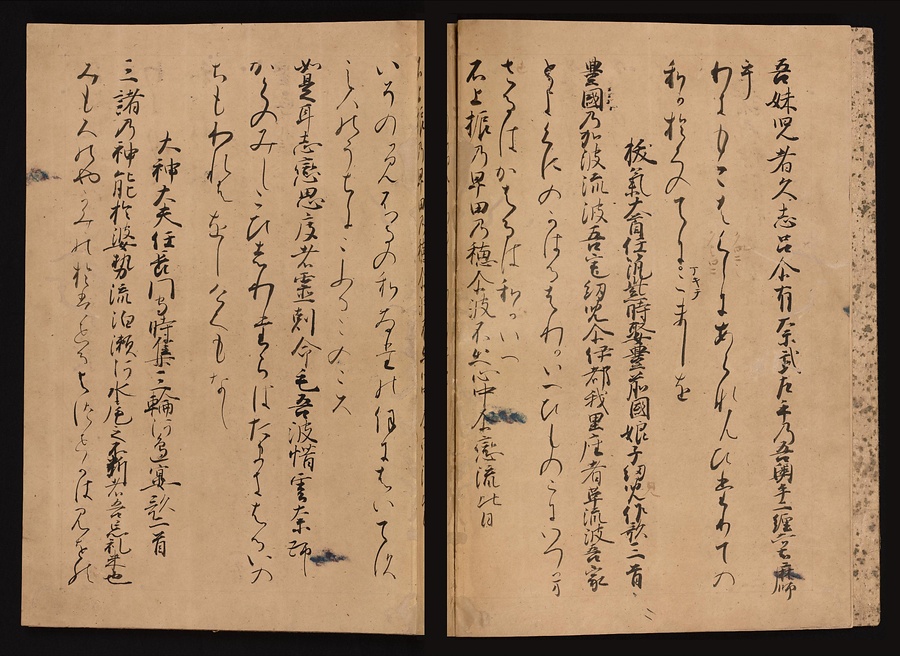 吾妹児者久志呂尓有奈武左手乃吾奥手二纒去麻師
乎
わきもこはくしろにあらなんひたりての
わかおくのてにこましを
マキテ
抜氣大首任筑紫時娶豊前國娘子紐児作歌三首
豊國乃加波流波吾宅紐児尓伊都我里座者革流波吾家
とよくにのかはるはわかいへひものこにいつか
さるはかはるはわかいへ
石上振乃早田乃穂尓波不出心中尓戀流比日
いそのかみふるのわさたのほにはいてす
こころのうちにこふるこのころ
如是耳志戀思度者霊剋命毛吾波惜雲奈師
かくのみしこひしわたらはたまきはるいの
ちもわれはをしけくもなし
大神大夫任長門守時集三輪河邊宴歌二首
三諸乃神能於婆勢流泊瀬河水尾之不断者吾忘礼米也
みもろのやかみのおはせるはつせかはみをの